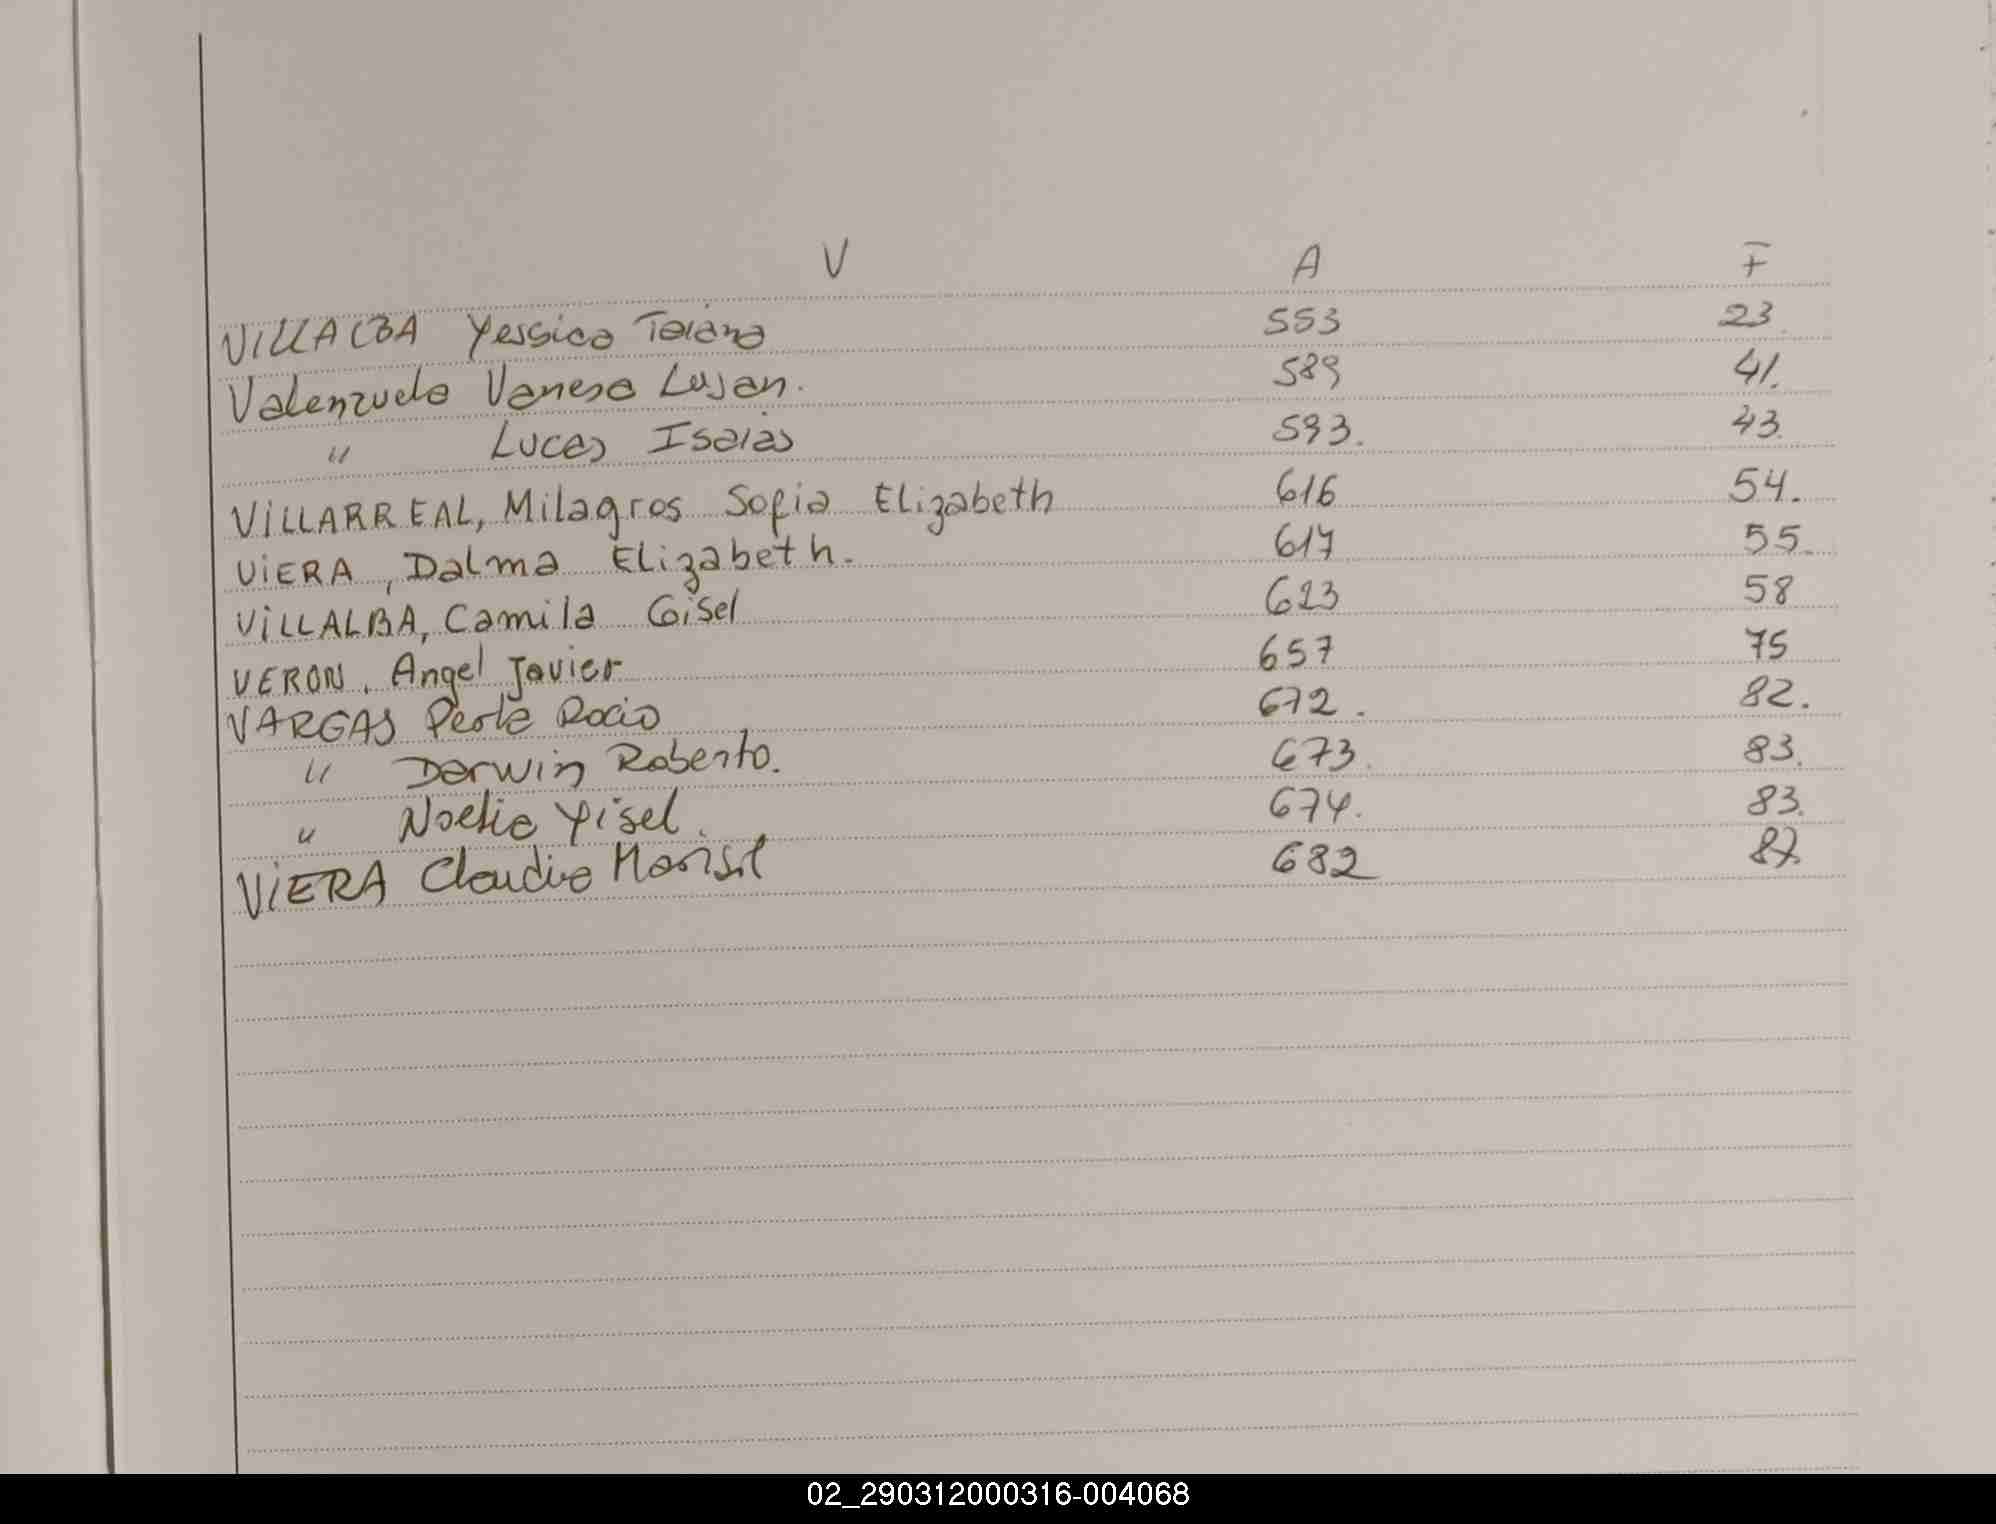 V A F
VILLALBA Yessica Taiana 553 23.
Valenzuela Vanesa Lujan. 589 41.
" Lucas Isaias 593. 43.
VILLARREAL, Milagros Sofia Elizabeth 616 54.
VIERA, Dalma Elizabeth. 617 55.
VILLALBA, Camila Gisel 623 58
VERON, Angel Javier 657 75
VARGAS Perla Rocio 672. 82.
" Darwin Roberto. 673. 83.
" Noelia Yisel. 674. 83.
VIERA Claudia Marisol 682 87.
02_290312000316-004068